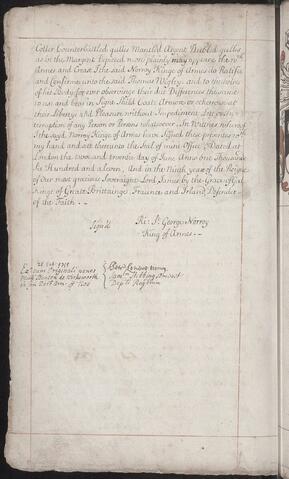 Coller Counterbattled gulles Mantled Argent Dubled gulles
as in the Margent Depicted more plainly may appeare the wch
Armes and Creast I the said Norroy Kinge of Armes do Ratifie
and Confirme unto the said Thomas Wigley and to the Issue
of his Body for ever observinge their due Difference the same
to use and bear in Signe Shild Coate Armour or otherwise at
their Libertye and Pleasure without Impediment Lett or
terruption of any Person or Persons whatsoever In Witness whereof
I the sayd Norroy Kinge of Armes have Signed these presents wth
my hand and sett thereunto the Seal of mine Office Dated at
London the two and twentie day of June Anno one Thousand
Six Hundred and eleven, And in the Ninth yeare of the Reigne
of Our most gracious Soveraigne Lord James by the Grace of God
Kinge of Greate Brittaingne Fraunce and Irland Defender
of the Faith
Sign'd Ri: St George Norroy
King of Armes
1710
Ex cum Originali penes
Benson de Wirksworth
in Com Derb
Peter Le Neve Norroy
Stebbing Somerset
Dep ts Regstrm